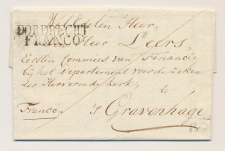 DORDRECHT
FRANCO
Heer,
Heer Leers,
Eersten Commies van Financie
bij het Departement voor de Zaken
der Hervormde Kerk
te
Franco 's Gravenhage